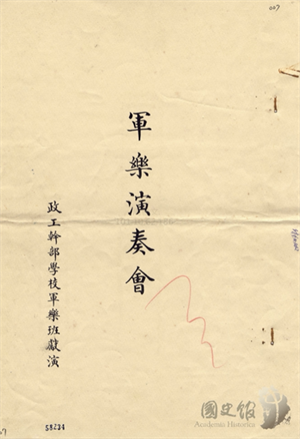 軍樂演奏會
政工幹部學校軍樂班獻演
58234
國史館
Academia Historica